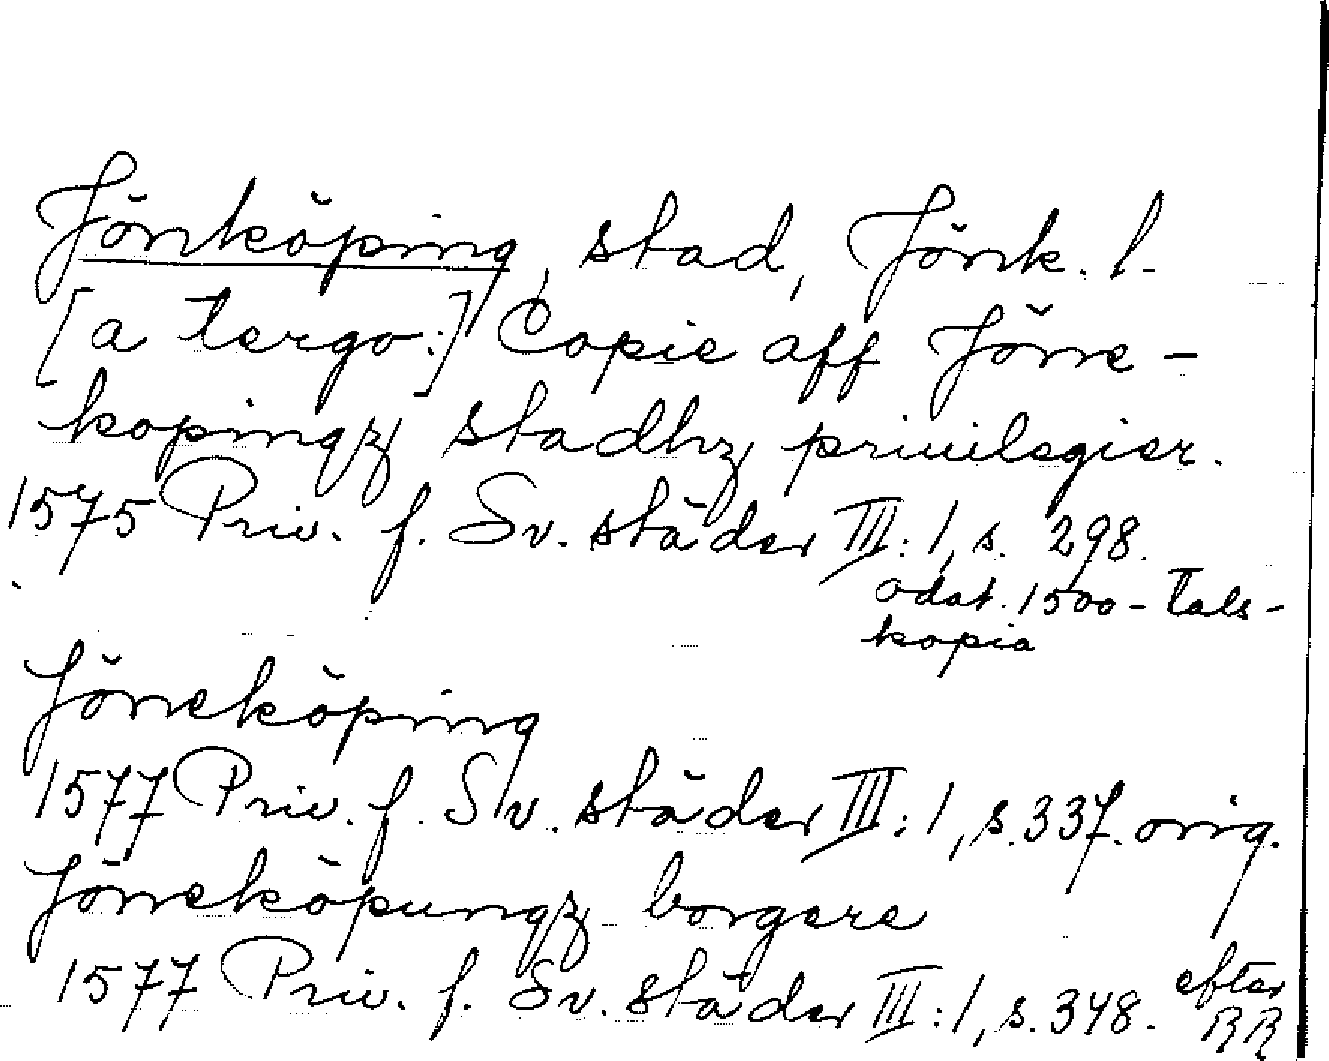 Jönköping, stad, Jönk. l.
[a tergo:] Copie aff Jönne-
kopingz stadhz priuilegier.
1575 Priv. f. Sv. städer III: 1, s. 298.
odat. 1500-tals-
kopia
Jöneköping
1577 Priv. f. Sv. städer III: 1, s. 337. orig.
Jöneköpungz borgere
1577 Priv. f. Sv. städer III: 1, s. 348. efter
RR